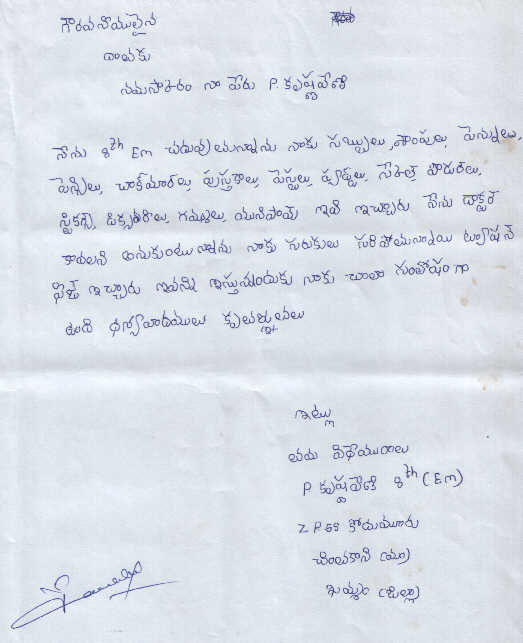 గౌరవనీయులైన
దాతలకు
నమస్కారం నా పేరు P. కృష్ణవేణి
నేను 8th Em చదువుతున్నాను నాకు సబ్బులు, షాంపులు, పెన్నులు,
పెన్సిలు, చాక్ మార్ లు, పుస్తకాలు, పేస్టులు, ప్యాడ్లు, పౌడరులు,
స్టికర్స్, డిక్షనరీలు, గమ్ములు, యునిఫామ్ ఇవి ఇచ్చారు నేను డాక్టర్
కావాలని అనుకుంటున్నాను నాకు సరుకులు సరిపోయినాయి ట్యూషన్
ఫీజు ఇచ్చారు ఇవన్ని ఇస్తున్నందుకు నాకు చాలా సంతోషంగా
ఉంది ధన్యవాదములు కృతజ్ఞతలు
ఇట్లు
తమ విధేయురాలు
P. కృష్ణవేణి 8th (Em)
Z P SS కోదుమూరు
చింతకాని (మం)
ఖమ్మం (జిల్లా)